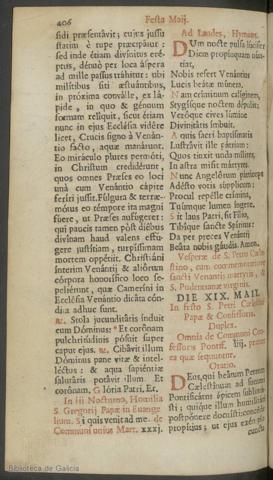 406
Festa Maij.
sidi præsentâvit; cujus jussu
statim è rupe præcipâtur:
sed inde étiam divinitus eré-
ptus, dénuò per loca áspera
ad mille passus tráhitur: ubi
milítibus siti æstuántibus,
in próxima convâlle, ex lá-
pide, in quo & génuum
formam relíquit, sicut étiam
nunc in ejus Ecclésia vidére
licet, Crucis signo à Venân-
tio facto, aquæ manárunt.
Eo miráculo plures permóti,
in Christum credidérunt,
quos omnes Præses eo loci
unà cum Venántio cápite
feríri jussit. Fúlgura & terræ-
mótus eo témpore ita magni
fuére, ut Præses aufúgeret:
qui paucis tamen pòst diébus
divínam haud valens effu-
gere justítiam, turpíssimam
mortem oppétiit. Christiáni
ínterim Venántii & aliórum
córpora honorífico loco se-
peliérunt, quæ Cameríni in
Ecclésia Venántio dicáta cón-
dita adhuc sunt.
℟. Stola jucunditátis índuit
eum Dóminus: * Et corónam
pulchritúdinis pósuit super
caput ejus. ℣. Cibávit illum
Dóminus pane vitæ & intel-
léctus: & aqua sapiéntiæ
salutáris potávit illum. Et
corónam. Glória Patri, Et.
In iij Nocturno, Homilia
S. Gregorij Papæ in Evange-
lium. Si quis venit ad me. de
Communi unius Mart. xxxj.
Ad Laudes, Hymnus.
DUm nocte pulsa lúcifer
Diem propínquam nún-
tiat,
Nobis refert Venántius
Lucis beátæ múnera.
Nam críminum calíginem,
Stygísque noctem dépulit:
Veróque cives lúmine
Divinitátis ímbuit.
Aquis sacri baptísmatis
Lustrávit ille pátriam:
Quos tinxit unda mílites,
In astra misit mártyres.
Nunc Angelórum párticeps
Adésto votis súpplicum:
Procul repélle crímina,
Tuúmque lumen íngere.
Sit laus Patri, sit Fílio,
Tibíque sancte Spíritus:
Da per preces Venántii
Beáta nobis gáudia. Amen.
Vesperæ de S. Petro Cæle-
stino, cum commemoratione
sancti Venantii martyris, &
S. Pudentianæ virginis.
DIE XIX. MAII.
In festo S. Petri Cælestini
Papæ & Confessoris.
Duplex.
Omnia de Communi Con-
fessoris Pontif. liij. præter
ea quæ sequuntur.
Oratio.
DEus, qui beátum Petrum
Cælestínum ad summi
Pontificátus ápicem sublimá-
sti; quique illum humilitáti
postpónere docuísti: concéde
propítius; ut ejus exémplo
cuncta
Biblioteca de Galicia